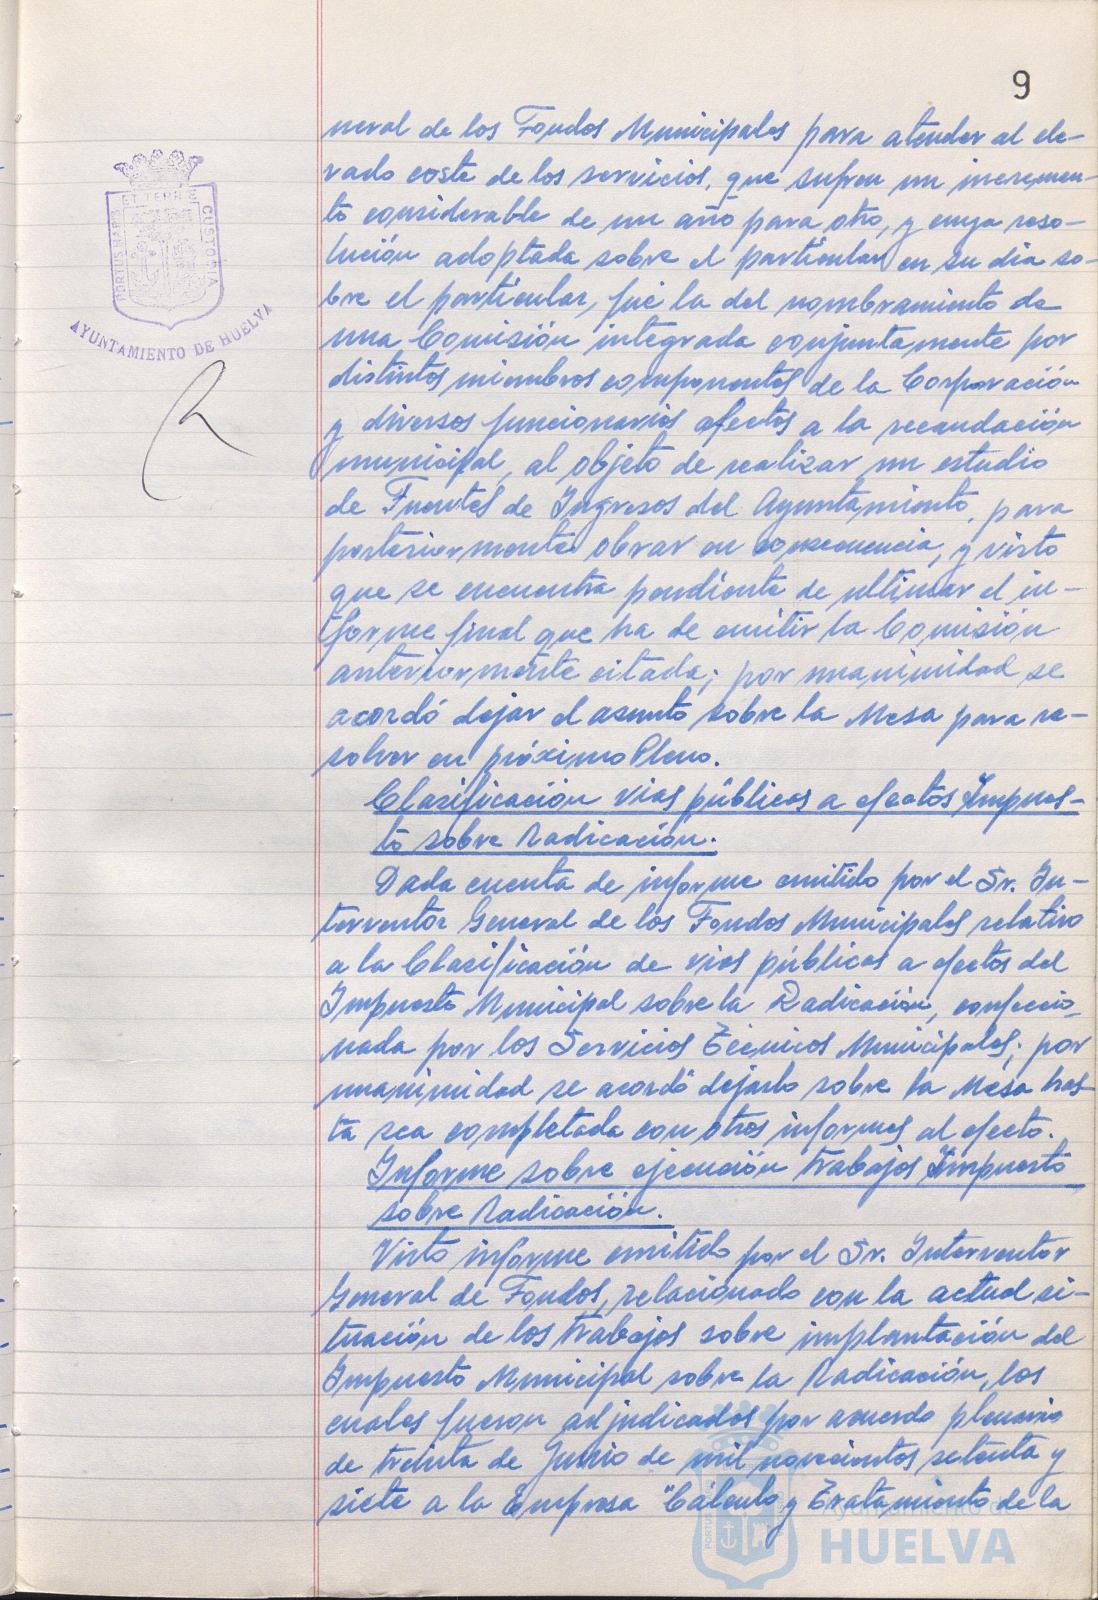 9
neral de los Fondos Municipales para atender al ele-
vado coste de los servicios, que sufren un incremen-
to considerable de un año para otro, y cuya reso-
lución adoptada sobre el particular en su dia so-
bre el particular, fué la del nombramiento de
una Comisión integrada conjuntamente por
distintos miembros componentes de la Corporación
y diversos funcionarios afectos a la recaudación
municipal, al objeto de realizar un estudio
de Fuentes de Ingresos del Ayuntamiento, para
posteriormente obrar en consecuencia, y visto
que se encuentra pendiente de ultimar el in-
forme final que ha de emitir la Comisión
anteriormente citada; por unanimidad se
acordó dejar el asunto sobre la Mesa para re-
solver en próximo Pleno.
Clasificación vias públicas a efectos Impues-
to sobre Radicación.
Dada cuenta de informe emitido por el Sr. In-
terventor General de los Fondos Municipales relativo
a la Clasificación de vias públicas a efectos del
Impuesto Municipal sobre la Radicación, confeccio-
nada por los Servicios Técnicos Municipales; por
unanimidad se acordó dejarlo sobre la Mesa has-
ta sea completada con otros informes al efecto.
Informe sobre ejecución trabajos Impuesto
sobre Radicación.
Visto informe emitido por el Sr. Interventor
General de Fondos, relacionado con la actual si-
tuación de los trabajos sobre implantación del
Impuesto Municipal sobre la Radicación, los
cuales fueron adjudicados por acuerdo plenario
de treinta de Junio de mil novecientos setenta y
siete a la Empresa "Cálculo y Tratamiento de la
PORTUS MARIS ET TERRE CUSTODIA
AYUNTAMIENTO DE HUELVA
Ayuntamiento de
HUELVA